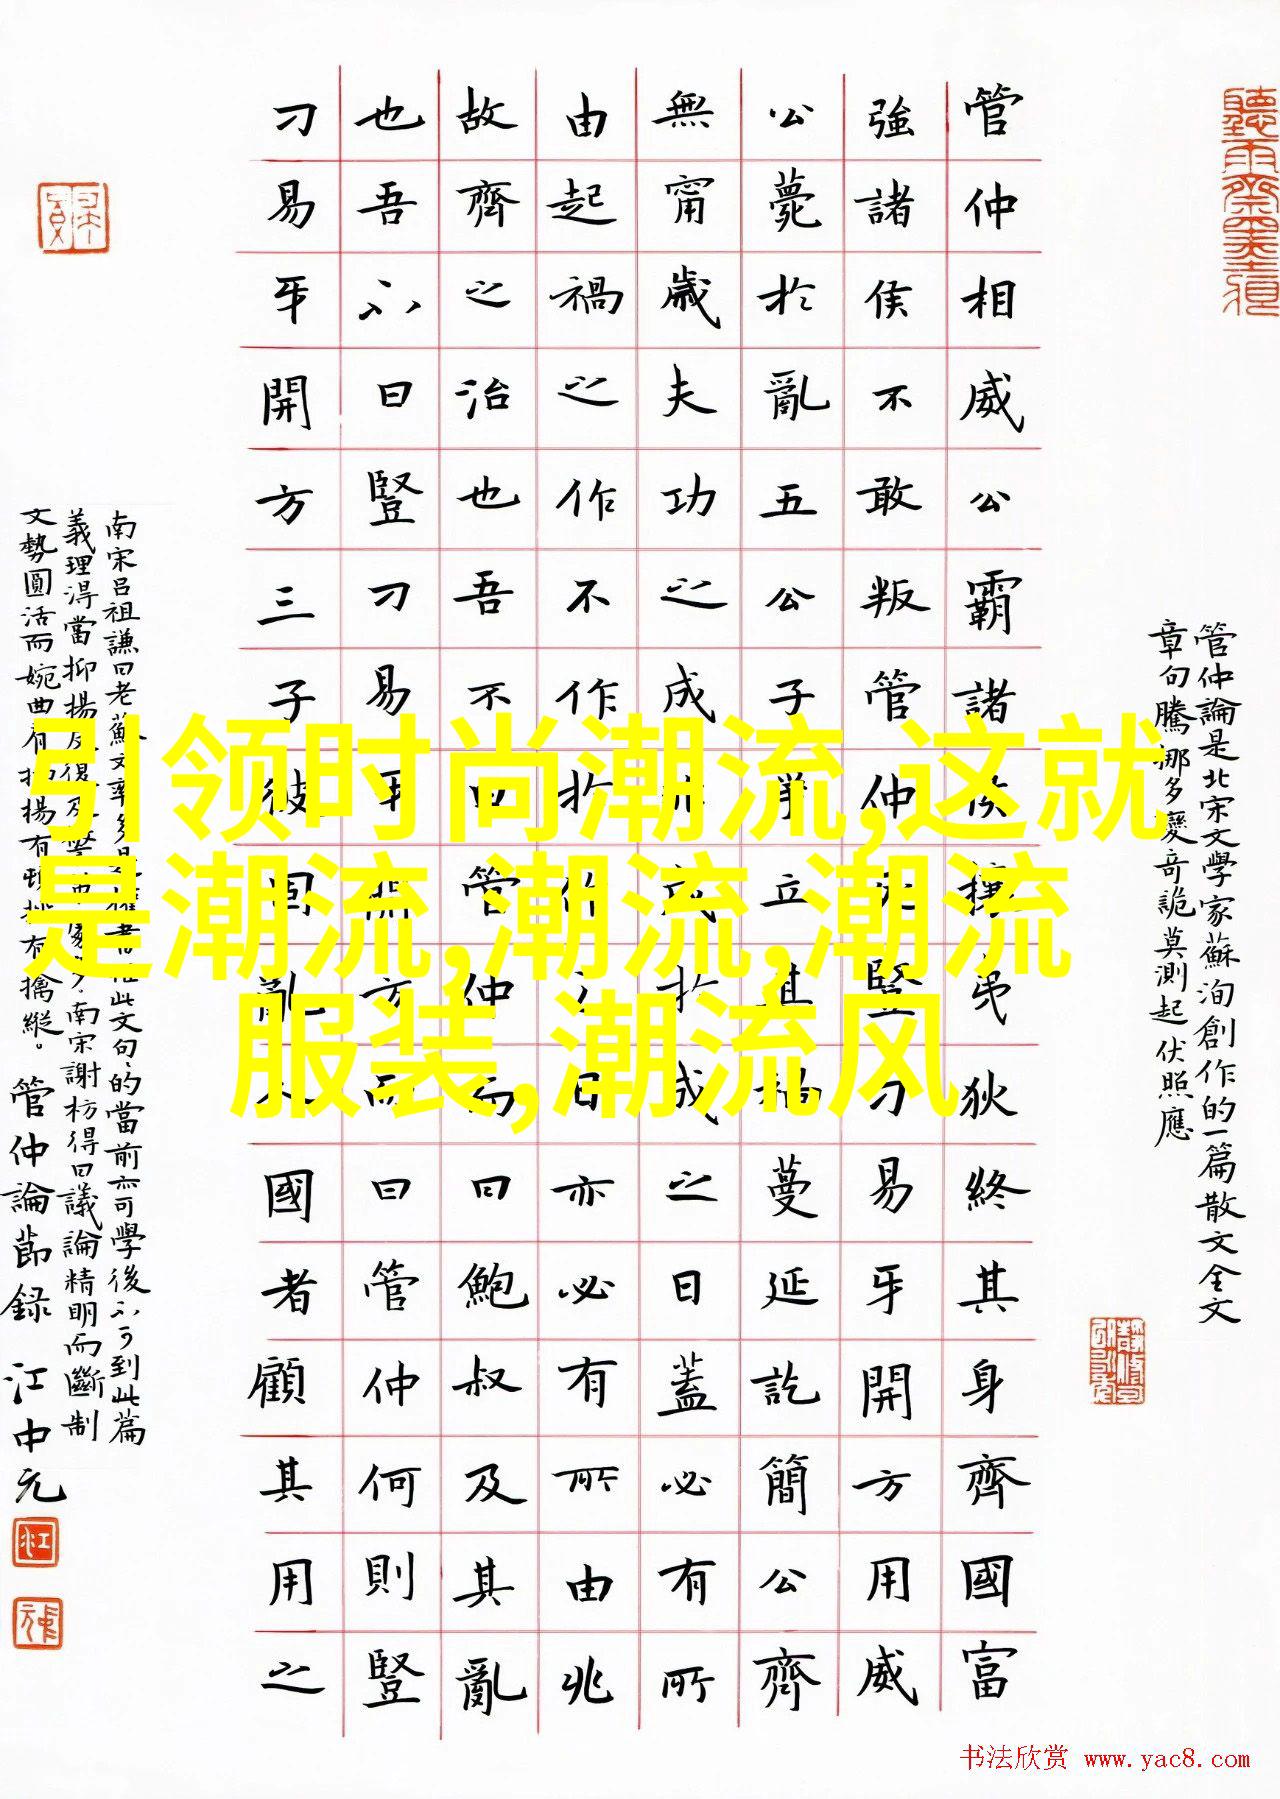 管仲論是北宋文學家蘇洵創作的一篇散文全文
章句騰挪多變奇詭莫測起伏照應
管仲相威公霸諸侯攘夷狄終其身齊國富
強諸侯不敢叛管仲死豎刁易牙開方用威
公薨於亂五公子爭立其禍蔓延訖簡公齊
無甯歲夫功之成非成於成之日蓋必有所
由起禍之作不作於作之日亦必有所由兆
故齊之治也吾不曰管仲而曰鮑叔及其亂
也吾不曰豎刁易牙開方而曰管仲何則豎
刁易牙開方三子彼固亂人國者顧其用之
南宋呂祖謙曰老蘇文 此文句句的當前亦可學後不可到此篇
義理淂當抑揚反復 南宋謝枋得曰議論精明而斷制
文勢圓活而婉曲有抑揚有頓挫有擒縱。管仲論節錄 江中元
引领时尚潮流,这就
是潮流,潮流,潮流
服装,潮流风
书法欣赏 www.yac8.com